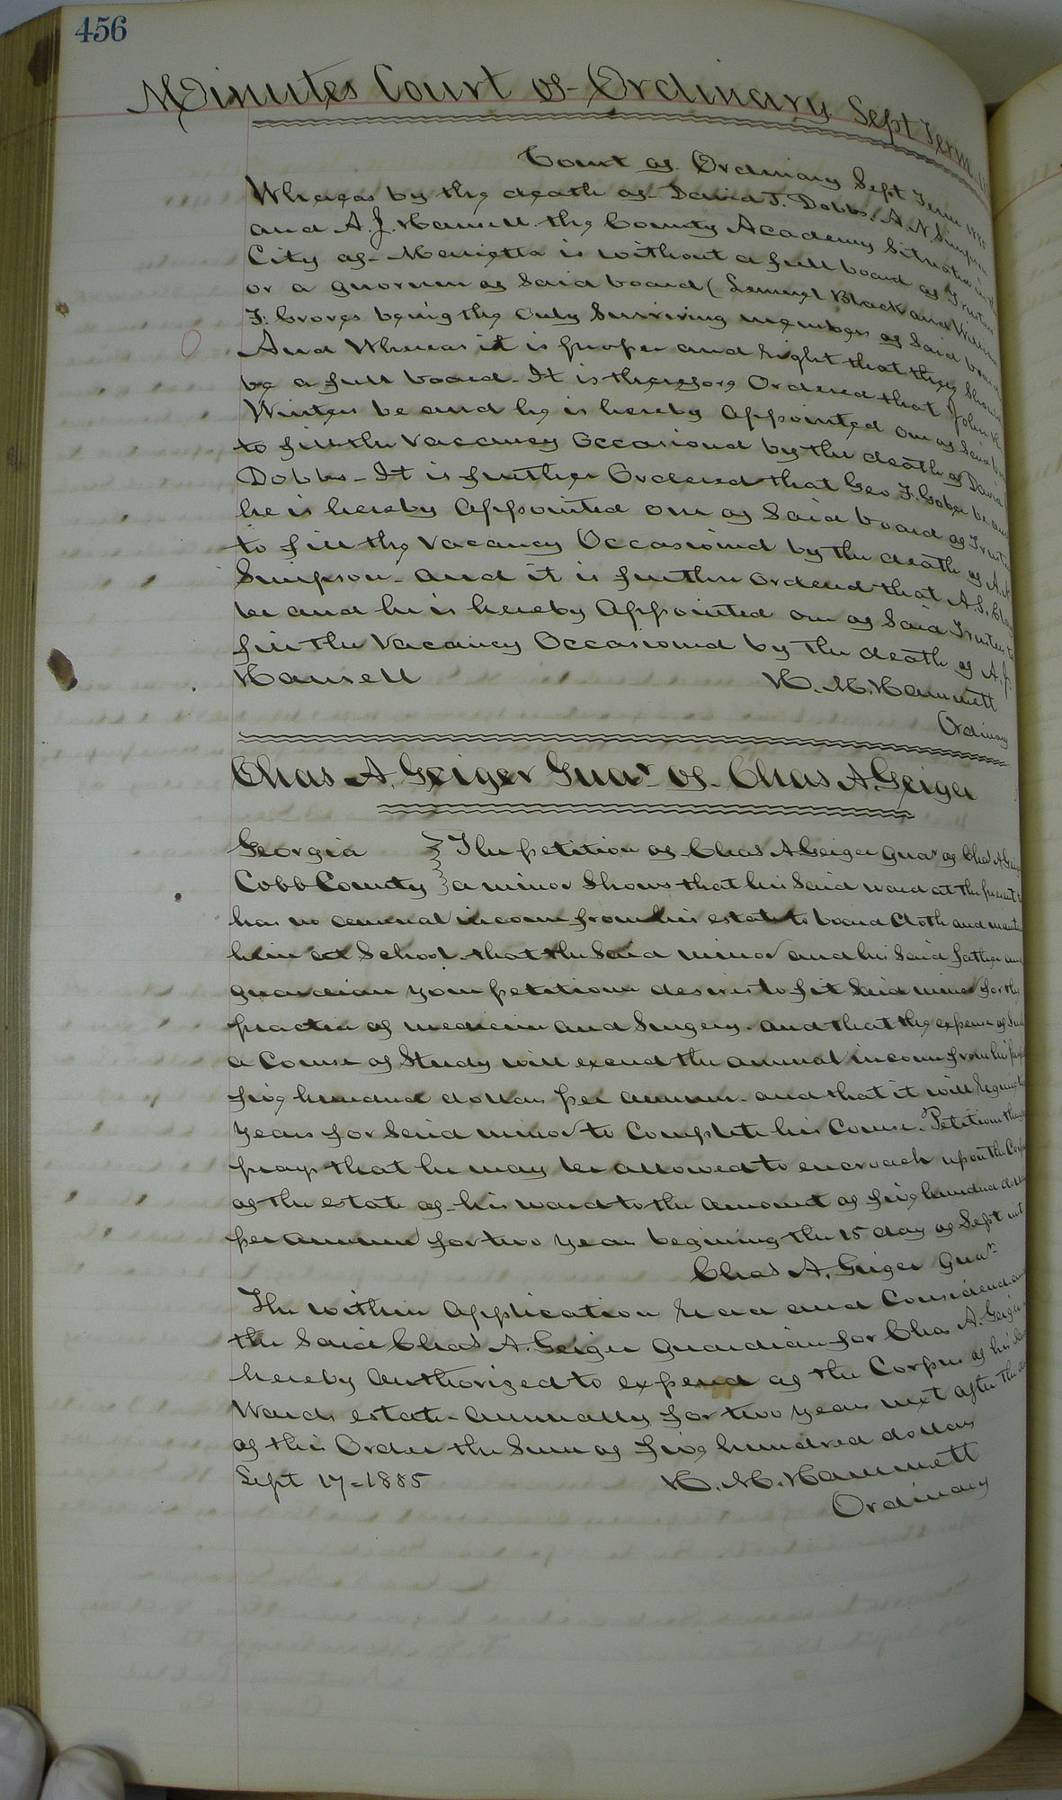 456
Minutes Court of Ordinary Sept Term
Court of Ordinary Sept Term
Whereas by the death of David T. Dobbs, A. N. Simpson
and A. J. Hansell the County Academy Situated in the
City of Marietta is without a full board of Trustees
or a quorum of Said board (Lemuel Black and William
T. Groves being the only Surviving members of Said board
And Whereas it is proper and right that there Should
be a full board. It is therefore Ordered that John R.
Winters be and he is hereby appointed one of Said
to fill the Vacancy Occasioned by the death of David
Dobbs - It is further Ordered that Geo F. Gober be and
he is hereby appointed one of Said board of Trustees
to fill the Vacancy Occasioned by the death of A. N.
Simpson. and it is further ordered that A. S. Clay
be and he is hereby appointed one of Said Trustees to
fill the Vacancy Occasioned by the death of A. J.
Hansell H. M. Hammett
Ordinary
Chas A. Geiger Guar of Chas A. Geiger
Georgia The petition of Chas A Geiger guar of Chas A Geiger
Cobb County a minor Shows that his Said ward at the present
has no annual income from his estate to board Cloth and
him at School. that the Said minor and his Said father and
guardian your petitioner desires to fit Said minor for the
practice of medicine and Surgery. and that the expense of Such
a Course of Study will exceed the annual income from his
five hundred dollars per annum. and that it will require
years for Said minor to Complete his Course. Petitioner
prays that he may be allowed to encroach upon the Corpus
of the estate of his ward to the amount of five hundred dollars
per annum for two years begining the 15 day of Sept
Chas A. Geiger guar
The within application read and Considered and
the Said Chas A. Geiger guardian for Chas A. Geiger
hereby authorized to expend of the Corpus of his Said
Wards estate annually for two years next after the
of this Order the Sum of five hundred dollars
Sept 17 - 1885 H. M. Hammett
Ordinary